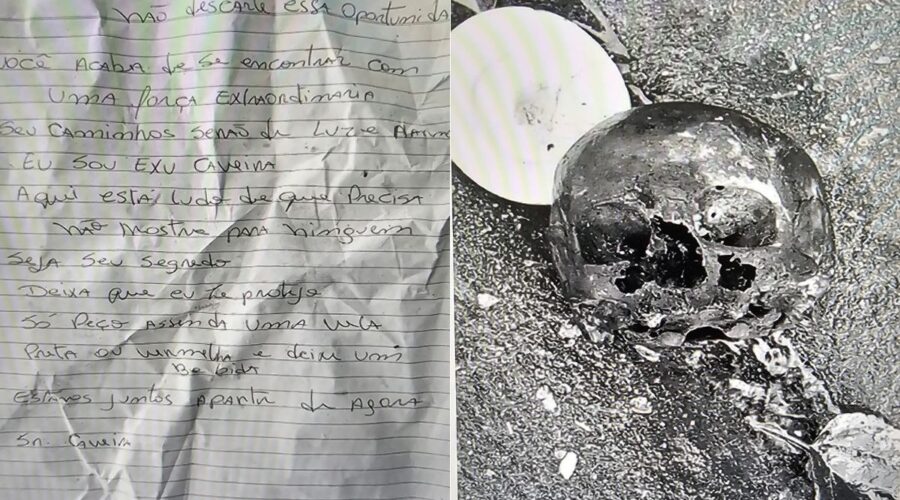 NÃO descarte essa Oportunida
VOCÊ ACABA de Se encontrar com
UMA força EXTRAORDINARIA
Seu CAMINHOS SERÃO de LUZ e
EU SOU EXU CAVEIRA
AQUI está tudo de que Precisa
NÃO MOSTRE PARA Ninguem
SEJA SEU SEGREDO
DEIXA que eu te protejo
SÓ PEÇO ASSENDA UMA VELA
Preta ou vermelha e deixe um
Bebida
ESTAMOS juntos APARTIR de AGORA
Sr. CAVEIRA